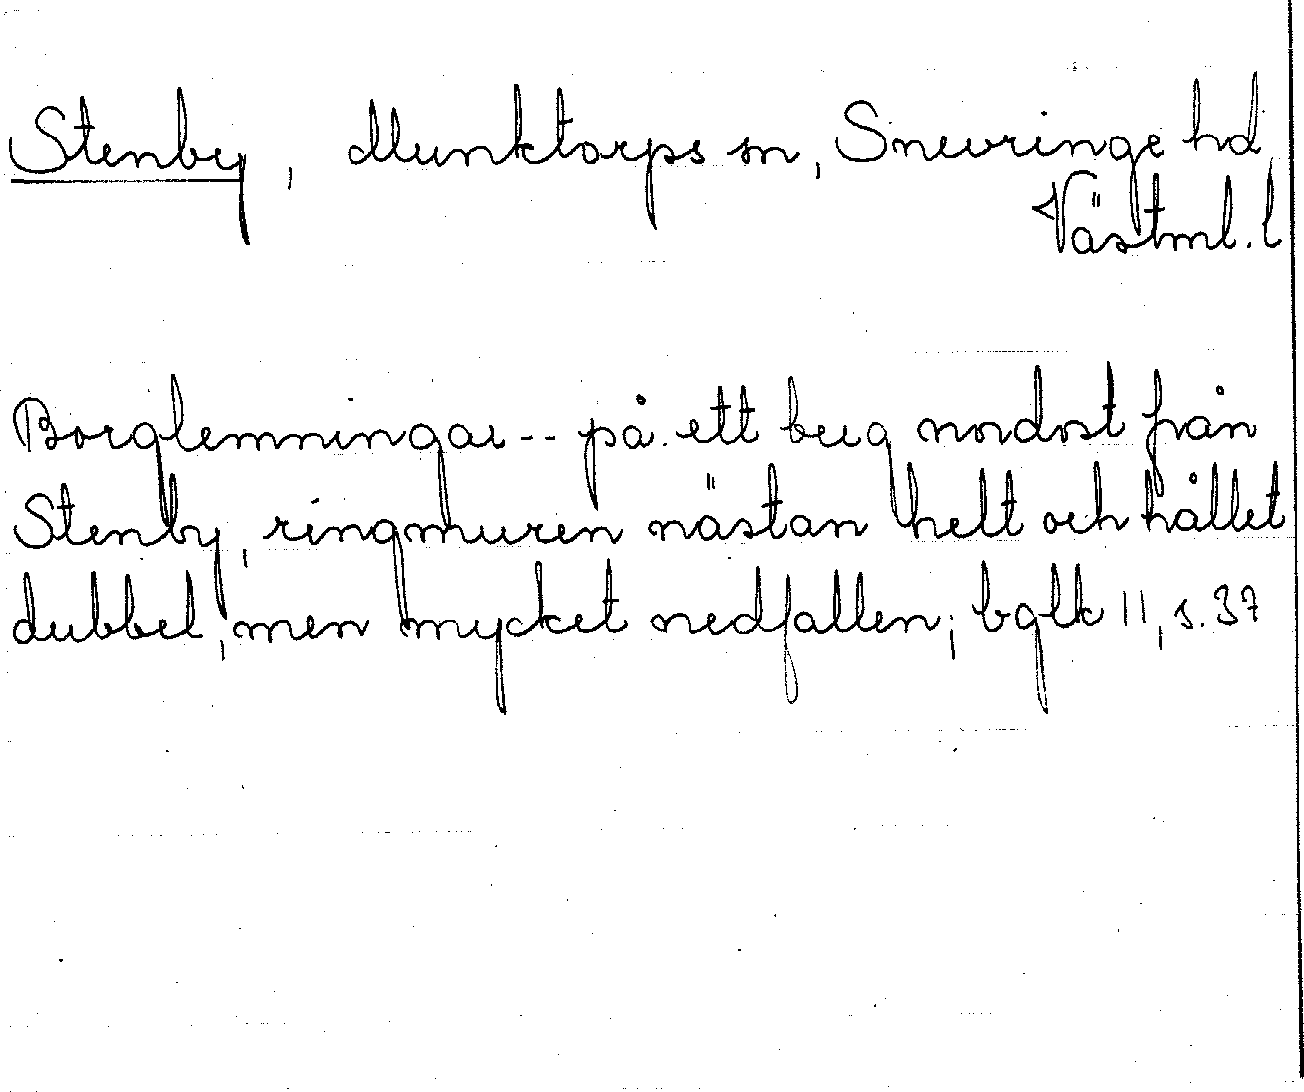 Stenby, Munktorps sn, Snevringe hd,
Västml. l
Borglemningar -- på ett berg nordost från
Stenby, ringmuren nästan helt och hållet
dubbel, men mycket nedfallen; bglk 11, s. 37